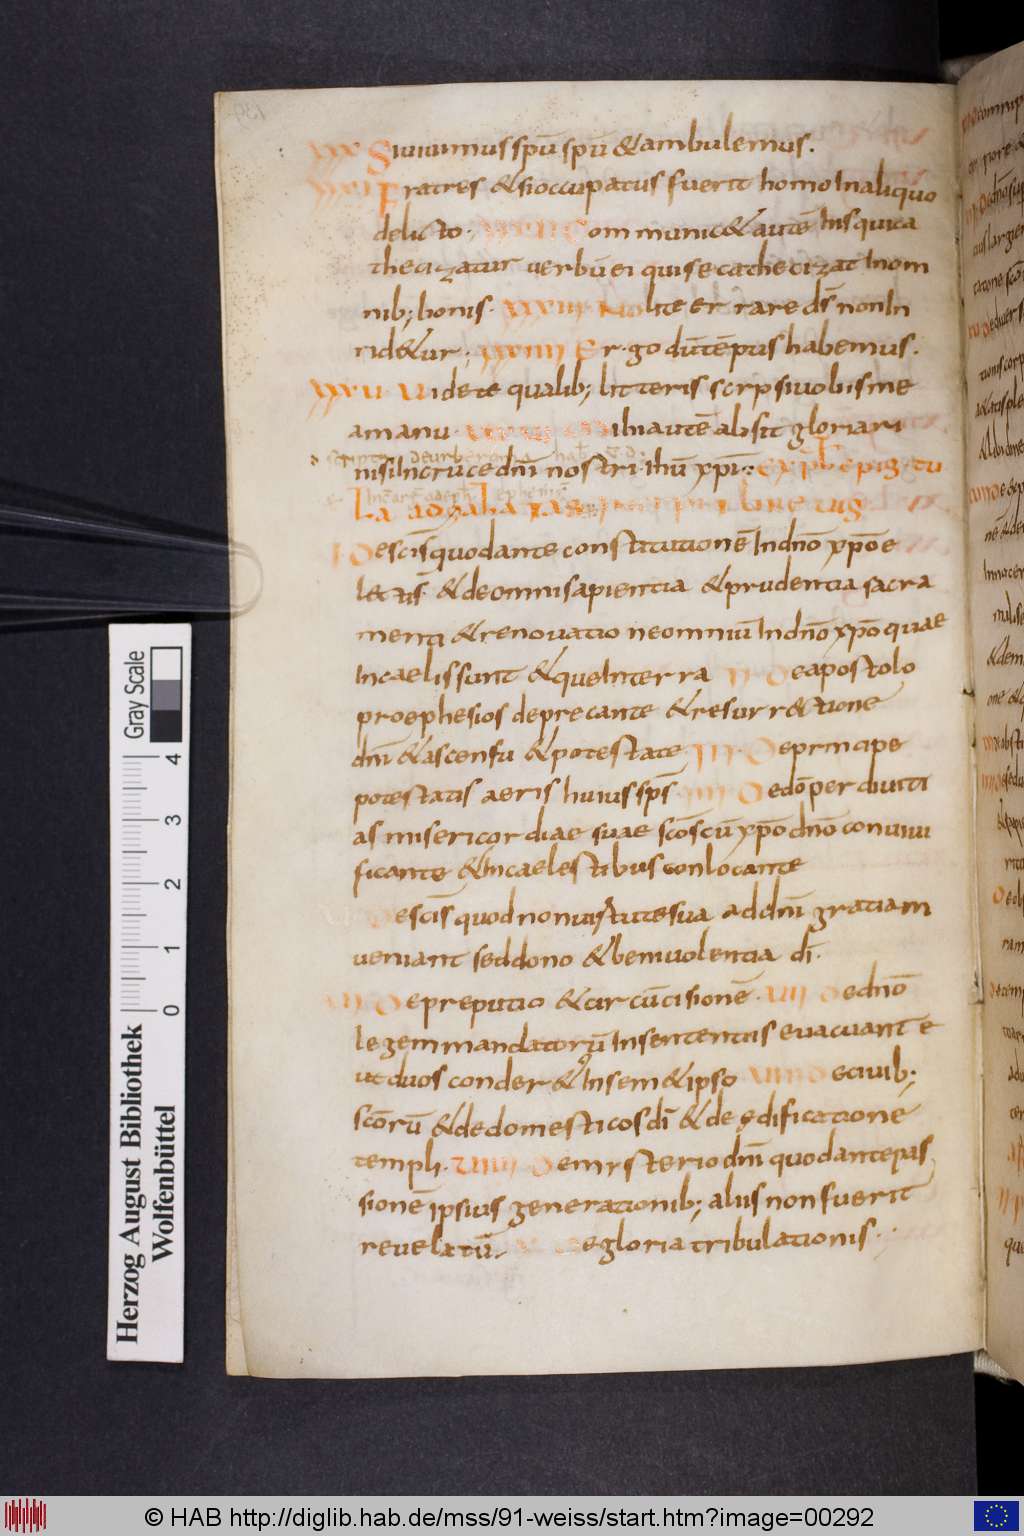 xx Siuiuimus spū spū & ambulemus.
xxi Fratres & si occupatus fuerit homo In aliquo
delicto. xxii Communic& autē his qui ca
thecizatur verbū ei qui se cathecizat In om
nib; bonis. xxiii Nolite errare ds̄ non In
rid&ur; xxiiii Ergo dū tēpus habemus.
xxu Videte qualib; litteris scrpsi uobis me
a manu xxui Mihi autē absit gloriari
nisi In cruce dn̄i nostri ihū xp̄i: expł epis tu
la ad galatas
I De scīs quod ante constitutionē In dn̄o xp̄o e
lectis & de omni sapientia & prudentia sacra
menti & renouatio ne omniū In dn̄o xp̄o quae
In caelis sunt & que In terra II De apostolo
pro ephesios deprecante & resurrectione
dn̄i & ascensu & potestate III De principe
potestatis aeris huius sps̄ IIII De dō per diuiti
as misericordiae suae scōs cū xp̄o dn̄o conuiui
ficante & In caelestibus conlocante
De scīs quod non uirtute sua ad dn̄i gratiam
ueniant sed dono & beniuolentia dī.
ui De preputio & circūcisionē. uii De dn̄o
legem mandatorū In sententiis euacuante
ut duos conder& In sem&ipso uiii De ciuib;
scōrū & de domesticos dī & de ędificatione
templi. uiiii De mysterio dn̄i quod ante pas
sionē ipsius generationib; aliis non fuerit
reuelatū. De gloria tribulationis.
Herzog August Bibliothek
Wolfenbüttel
Gray Scale
0 1 2 3 4
© HAB http://diglib.hab.de/mss/91-weiss/start.htm?image=00292